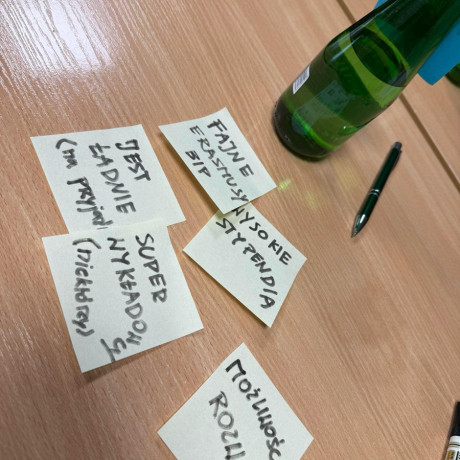 JEST
ŁADNIE
(na przykł
FAJNE
ERASMUSY
BIP
WYSOKIE
STYPENDIA
SUPER
WYKŁADOWCY
(niektórzy)
MOŻLIWOŚĆ
ROZW